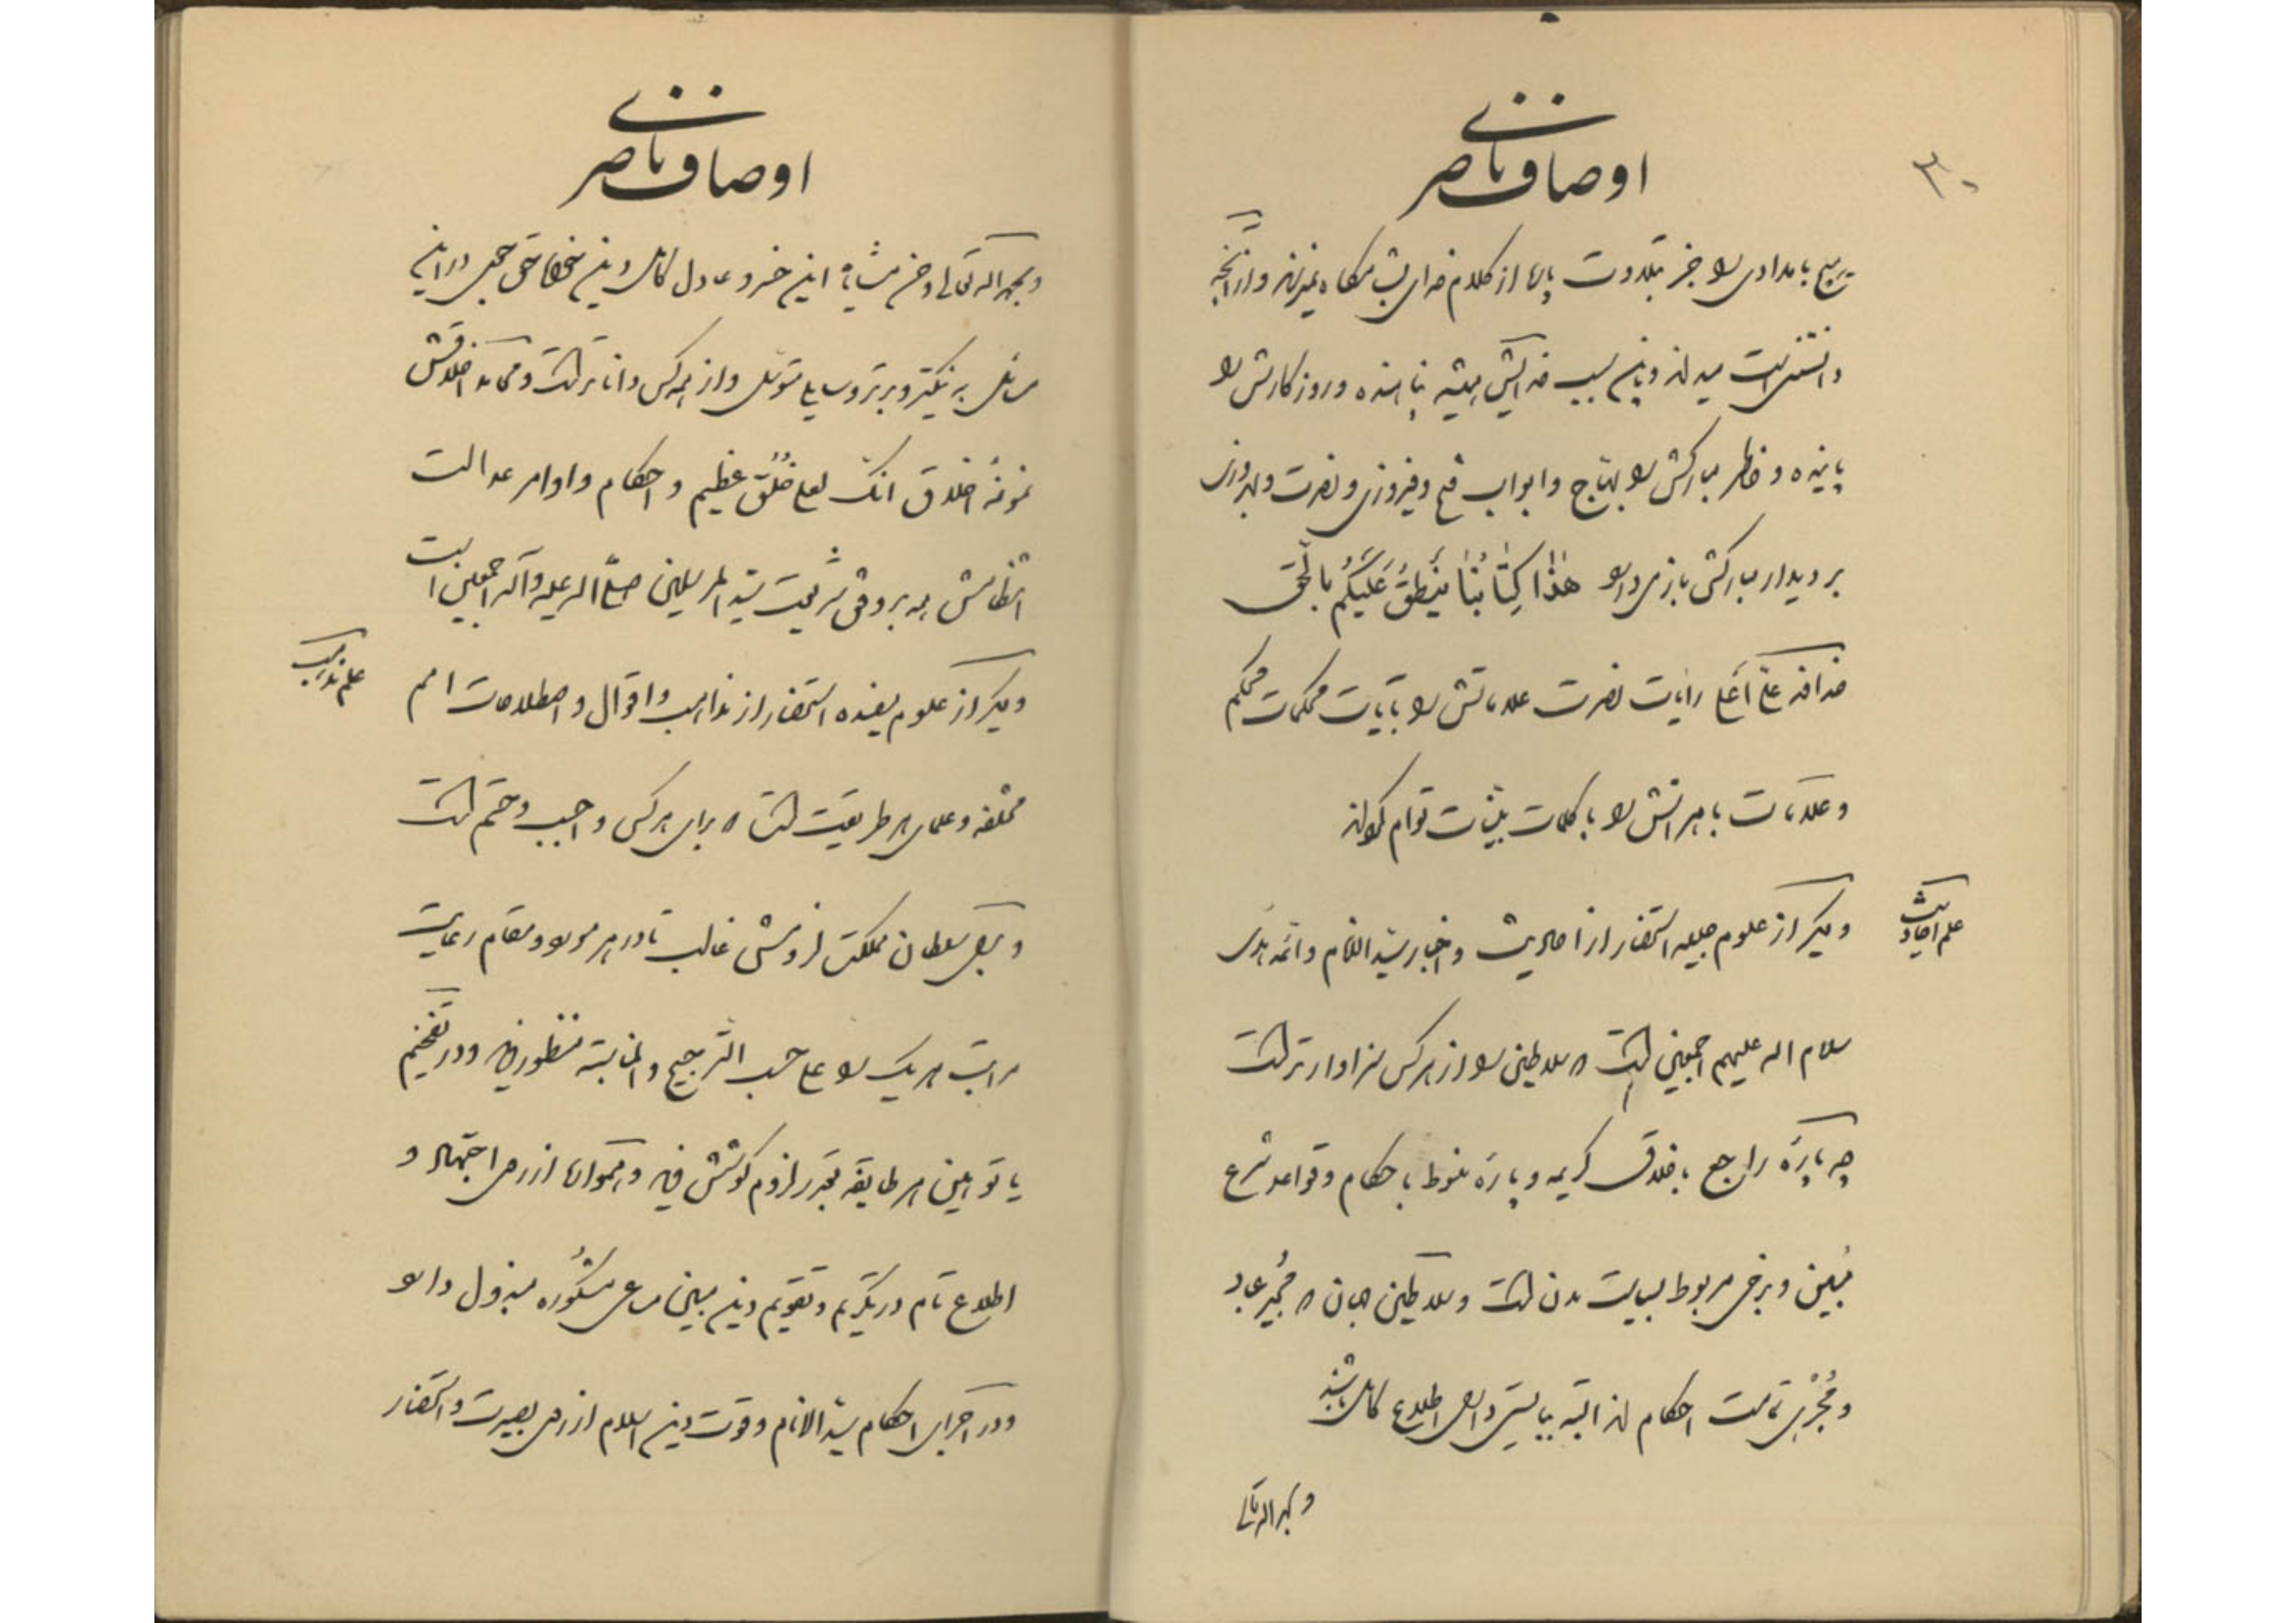 ۳۰
اوصاف ناصری
هیچ بامدادی را جز بتلاوت پاره از کلام خدای بشامگاه نمیرساند و از آنچه
دانستنی است میداند و باین سبب خدایش همیشه پاینده و روزگارش را
پاینده و خاطر مبارکش را بهّاج و ابواب فتح و فیروزی و نصرت و بهروزی
بر دیدار مبارکش باز می‌دارد هٰذا کِتٰابُنٰا یَنطِقُ عَلَیکُم بالحَق
رایات نصرت علاماتش را بآیات محکمات محکم
و علامات باهراتش را با کلمات بیّنات توام گرداند
علم احادیث
و دیگر از علوم جلیله استحضار از احادیث و اخبار سیّد انام و ائمه هدی
سلام الله علیهم اجمعین است که سلاطین را از هر کس سزاوارتر است
چه پارهٔ راجع باخلاق کریمه و پارهٔ منوط باحکام و قواعد شرع
مُبین و برخی مربوط بسیاست مدن است و سلاطین جهان که مُجیر عباد
و مُجری تمامت احکام‌اند البته ببایستی دارای اطلاع کامل باشند
و بحمد الله تعالی
اوصاف ناصری
و بحمد الله تعالی و حسن مشیّته این خسرو عادل کامل و این شخص حق‌جوی در این
مسائل به نیکتر و برتر وسایلی متوسّل و از همه کس داناتر است و محامد اخلاقش
نمونهٔ اخلاق انک لعلی خُلُق عظیم و احکام و اوامر عدالت
انتظامش همه بر وفق شریعت سیّد المرسلین صلّی الله علیه و آله اجمعین است
علم مذاهب
و دیگر از علوم مفیده استحضار از مذاهب و اقوال و اصطلاحات امم
مختلفه و علمای هر طریقت است که برای هر کس واجب و حتم است
و بر سلطان مملکت لزومش غالب تا در هر مورد و مقام رعایت
مراتب هر یک را علی حسب الترجیح و المناسبة منظور و در تفخیم
یا توهین هر طایفه بقدر لزوم کوشش و همواره از روی اجتهاد و
اطلاع تام در تکریم و تقویم دین مبین مساعی مشکُوره مبذول دارد
و در اجرای احکام سیّد الانام و قوت دین اسلام از روی بصیرت و استحضار